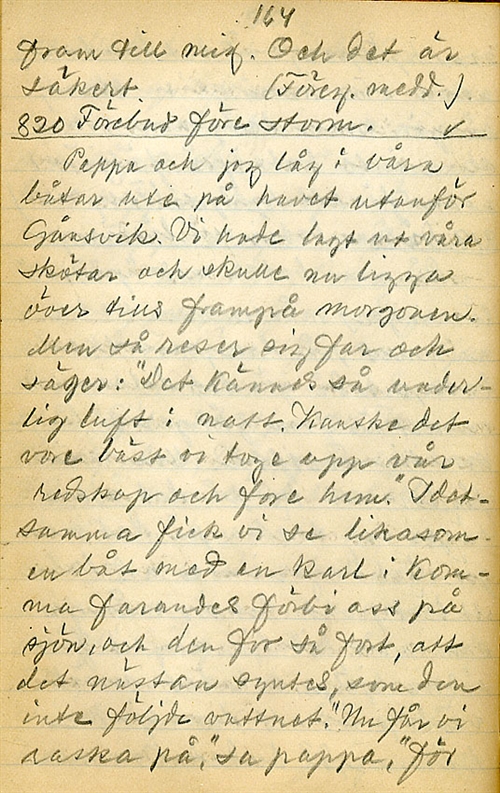 164
fram till mig. Och det är
säkert (Föreg. medd.).
820 Förebud före storm. ✓
Pappa och jag låg i våra
båtar ute på havet utanför
Gånsvik. Vi hade lagt ut våra
skötar och skulle nu ligga
över tills frampå morgonen.
Men så reser sig far och
säger: "Det kännes så under-
lig luft i natt. Kanske det
vore bäst vi toge upp vår
redskap och fore hem." I det-
samma fick vi se likasom
en båt med en karl i kom-
ma farandes förbi oss på
sjön, och den for så fort, att
det nästan syntes, som den
inte följde vattnet. "Nu får vi
raska på," sa pappa, "för